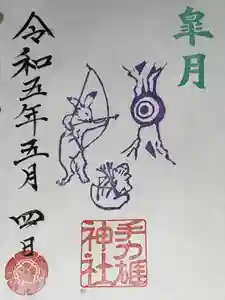 皐月
令和五年五月四日
手力雄
神社